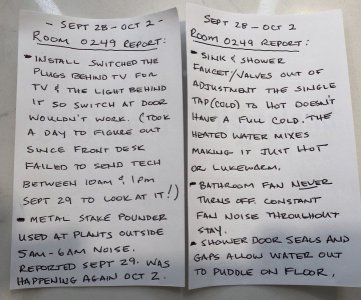 - SEPT 28 - OCT 2 -
ROOM 0249 REPORT:
• INSTALL SWITCHED THE
PLUGS BEHIND TV FOR
TV & THE LIGHT BEHIND
IT SO SWITCH AT DOOR
WOULDN'T WORK. (TOOK
A DAY TO FIGURE OUT
SINCE FRONT DESK
FAILED TO SEND TECH
BETWEEN 10AM & 1PM
SEPT 29 TO LOOK AT IT!)
• METAL STAKE POUNDER
USED AT PLANTS OUTSIDE
5AM-6AM NOISE.
REPORTED SEPT 29. WAS
HAPPENING AGAIN OCT 2.
SEPT 28 - OCT 2
ROOM 0249 REPORT:
• SINK & SHOWER
FAUCET/VALVES OUT OF
ADJUSTMENT THE SINGLE
TAP (COLD) TO HOT DOESN'T
HAVE A FULL COLD. THE
HEATED WATER MIXES
MAKING IT JUST HOT
OR LUKEWARM.
• BATHROOM FAN NEVER
TURNS OFF. CONSTANT
FAN NOISE THROUGHOUT
STAY.
• SHOWER DOOR SEALS AND
GAPS ALLOW WATER OUT
TO PUDDLE ON FLOOR.